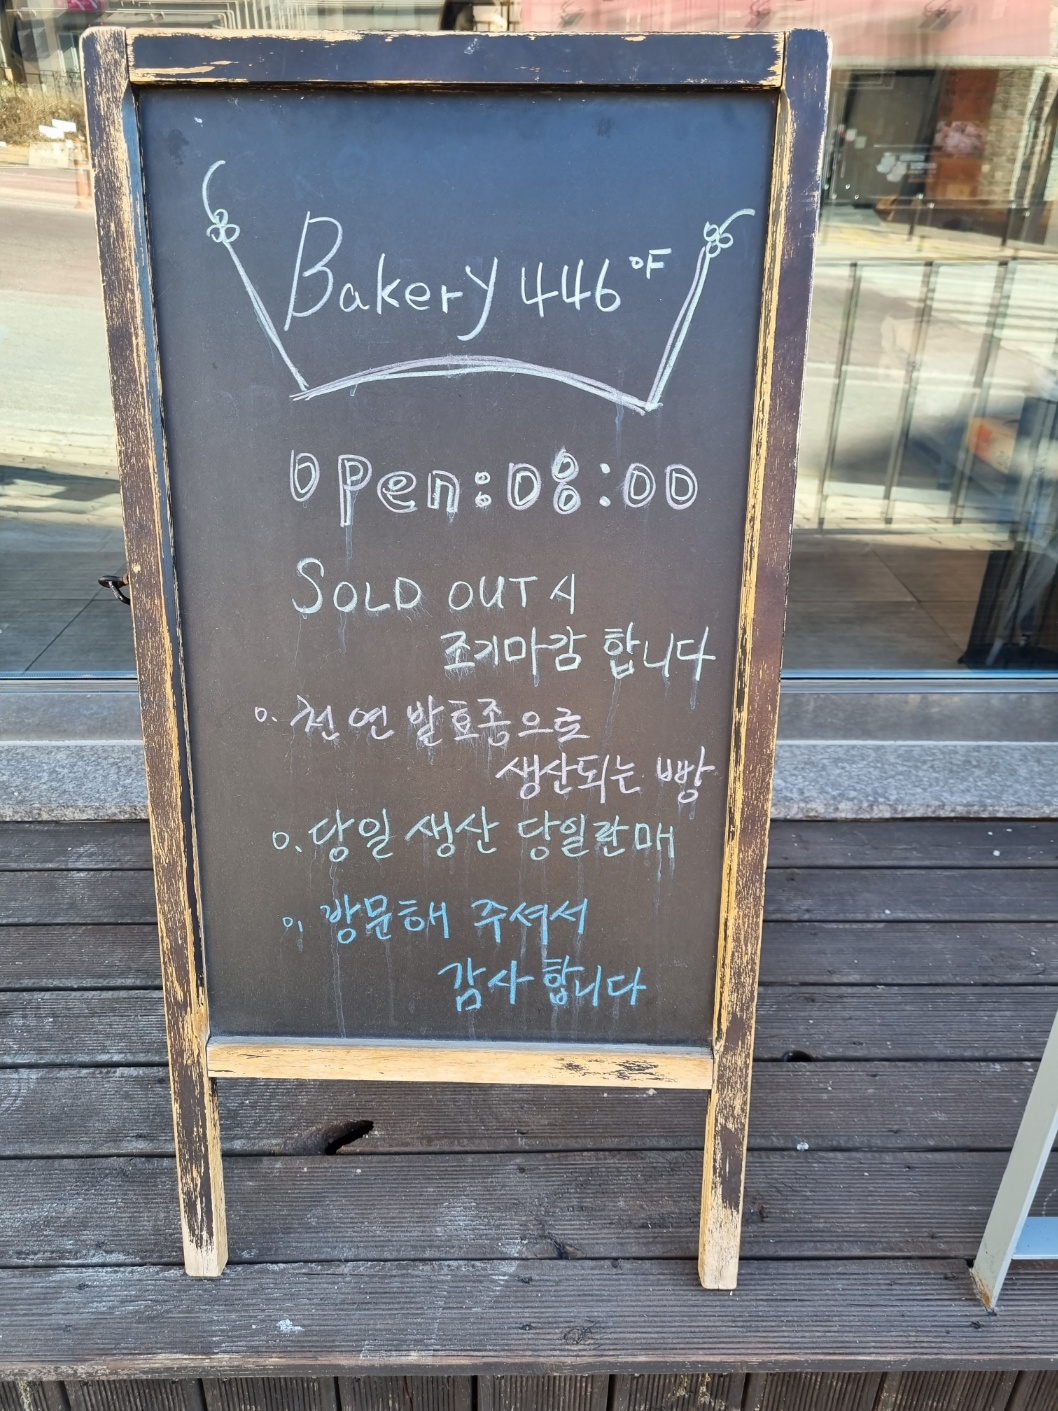 Bakery 446°F
Open:08:00
SOLD OUT시
조기마감 합니다
0. 천연 발효종으로
생산되는 빵
0. 당일 생산 당일판매
0. 방문해 주셔서
감사합니다